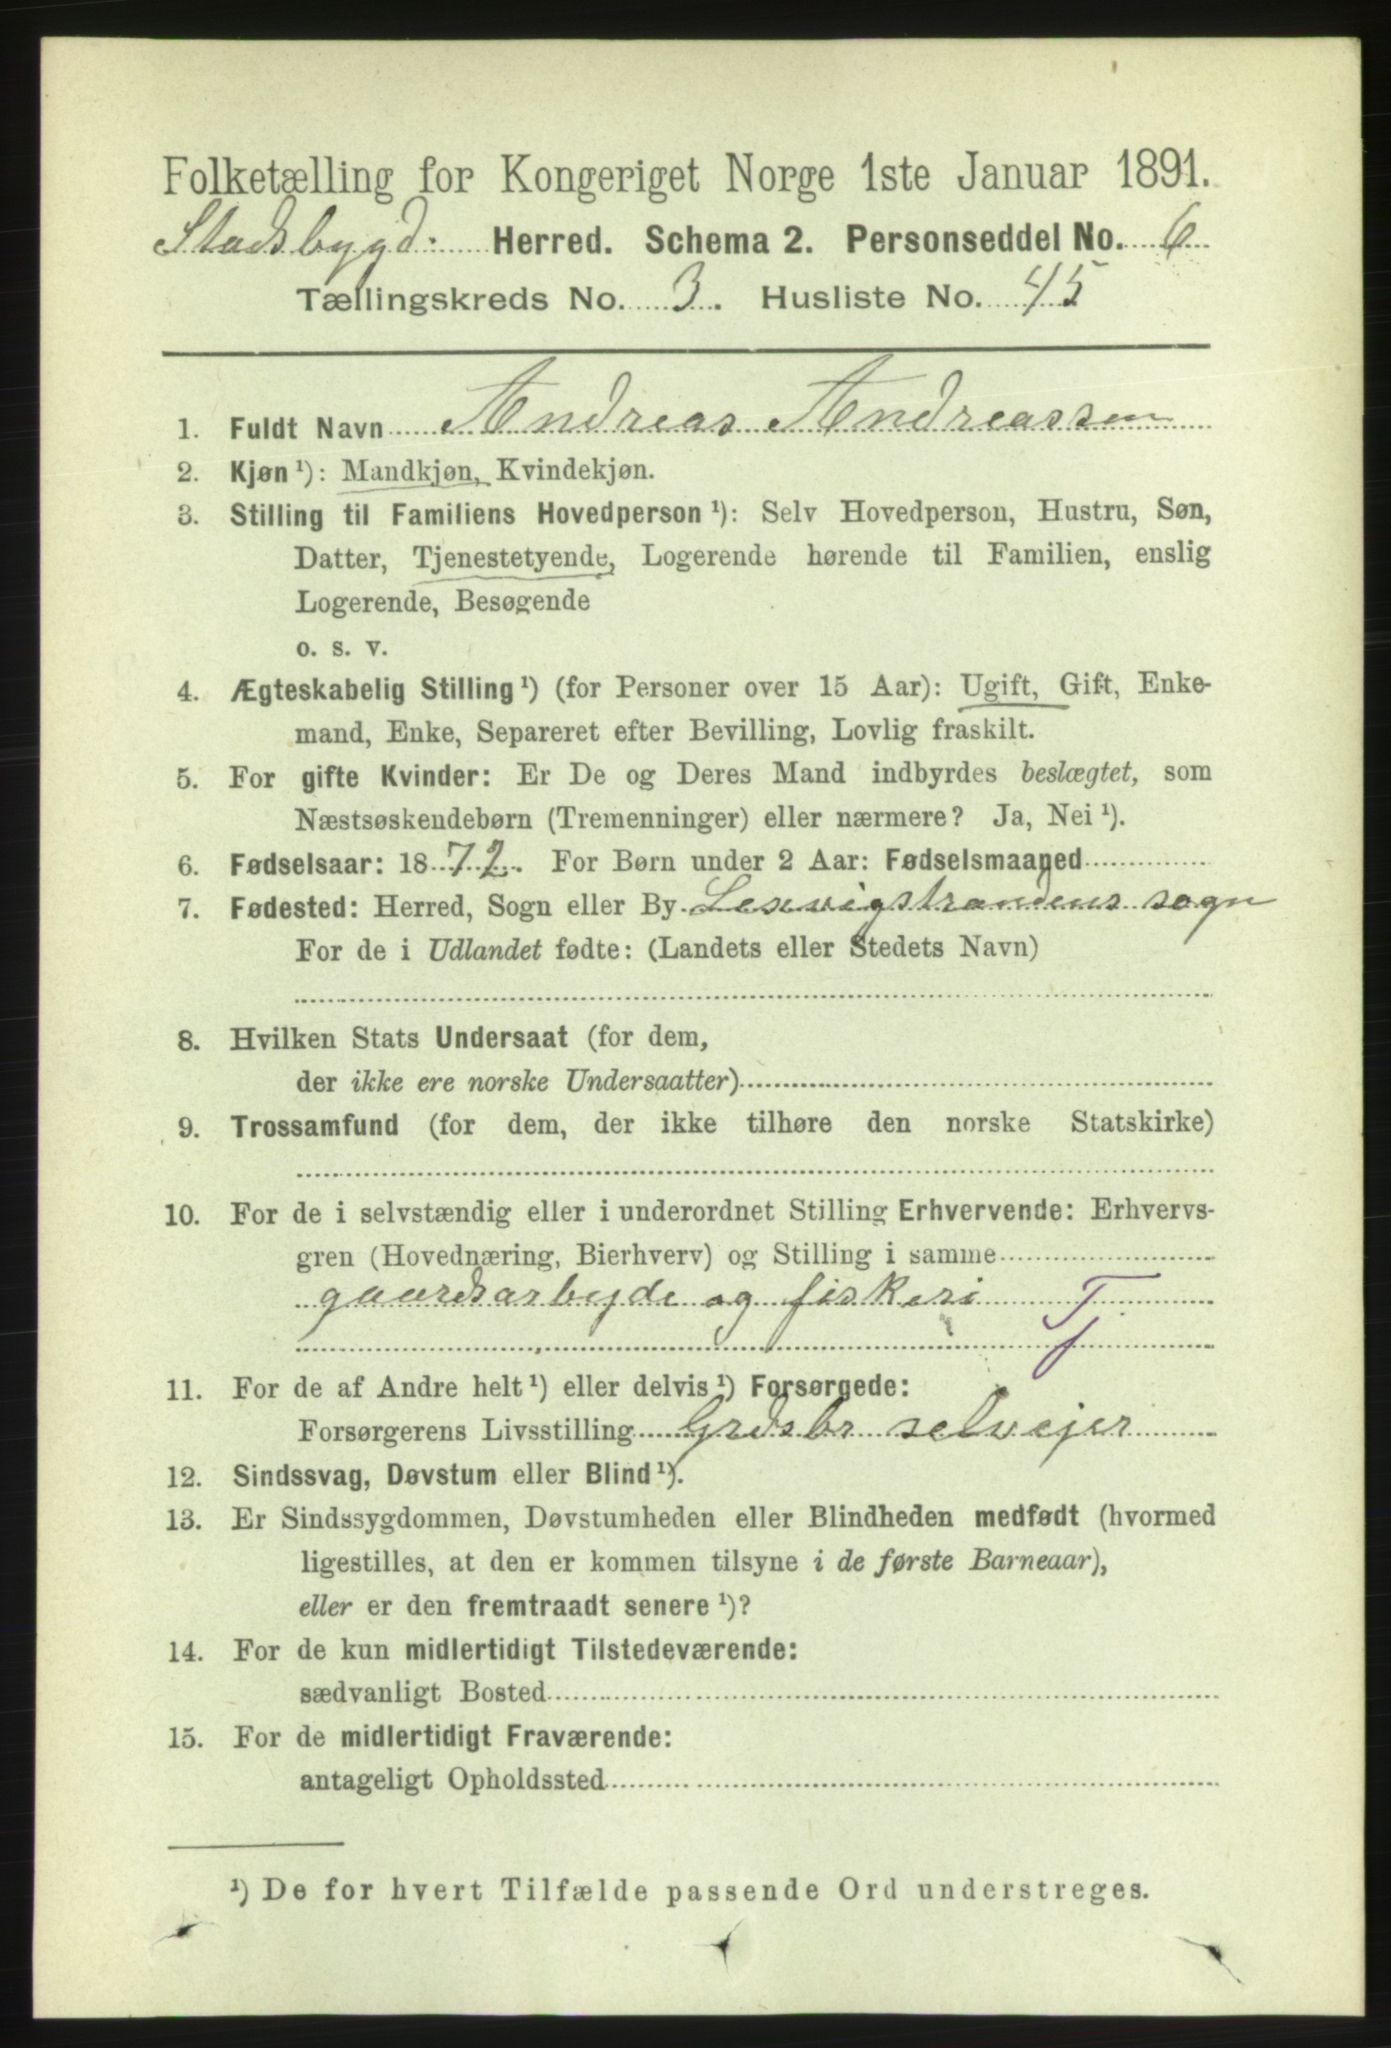 Folketælling for Kongeriget Norge 1ste Januar 1891.
Stadsbygd Herred. Schema 2. Personseddel No. 6
Tællingskreds No. 3. Husliste No. 45
1. Fuldt Navn Andreas Andreassen
2. Kjøn ¹): Mandkjøn, Kvindekjøn.
3. Stilling til Familiens Hovedperson ¹): Selv Hovedperson, Hustru, Søn,
Datter, Tjenestetyende, Logerende hørende til Familien, enslig
Logerende, Besøgende
o. s. v.
4. Ægteskabelig Stilling ¹) (for Personer over 15 Aar): Ugift, Gift, Enke-
mand, Enke, Separeret efter Bevilling, Lovlig fraskilt.
5. For gifte Kvinder: Er De og Deres Mand indbyrdes beslægtet, som
Næstsøskendebørn (Tremenninger) eller nærmere? Ja, Nei ¹).
6. Fødselsaar: 1872. For Børn under 2 Aar: Fødselsmaaned
7. Fødested: Herred, Sogn eller By Lexvigstrandens sogn
For de i Udlandet fødte: (Landets eller Stedets Navn)
8. Hvilken Stats Undersaat (for dem,
der ikke ere norske Undersaatter)
9. Trossamfund (for dem, der ikke tilhøre den norske Statskirke)
10. For de i selvstændig eller i underordnet Stilling Erhvervende: Erhvervs-
gren (Hovednæring, Bierhverv) og Stilling i samme
gaardsarbejde og fiskeri T
f
11. For de af Andre helt ¹) eller delvis ¹) Forsørgede:
Forsørgerens Livsstilling Grdsbr selvejer
12. Sindssvag, Døvstum eller Blind ¹).
13. Er Sindssygdommen, Døvstumheden eller Blindheden medfødt (hvormed
ligestilles, at den er kommen tilsyne i de første Barneaar),
eller er den fremtraadt senere ¹)?
14. For de kun midlertidigt Tilstedeværende:
sædvanligt Bosted
15. For de midlertidigt Fraværende:
antageligt Opholdssted
¹) De for hvert Tilfælde passende Ord understreges.